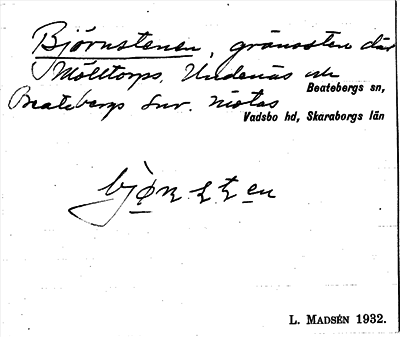 Björnstenen, gränssten där
Mölltorps, Undenäs och
Beatebergs snr. mötas
Beatebergs sn,
Vadsbo hd, Skaraborgs län
L. MADSÉN 1932.